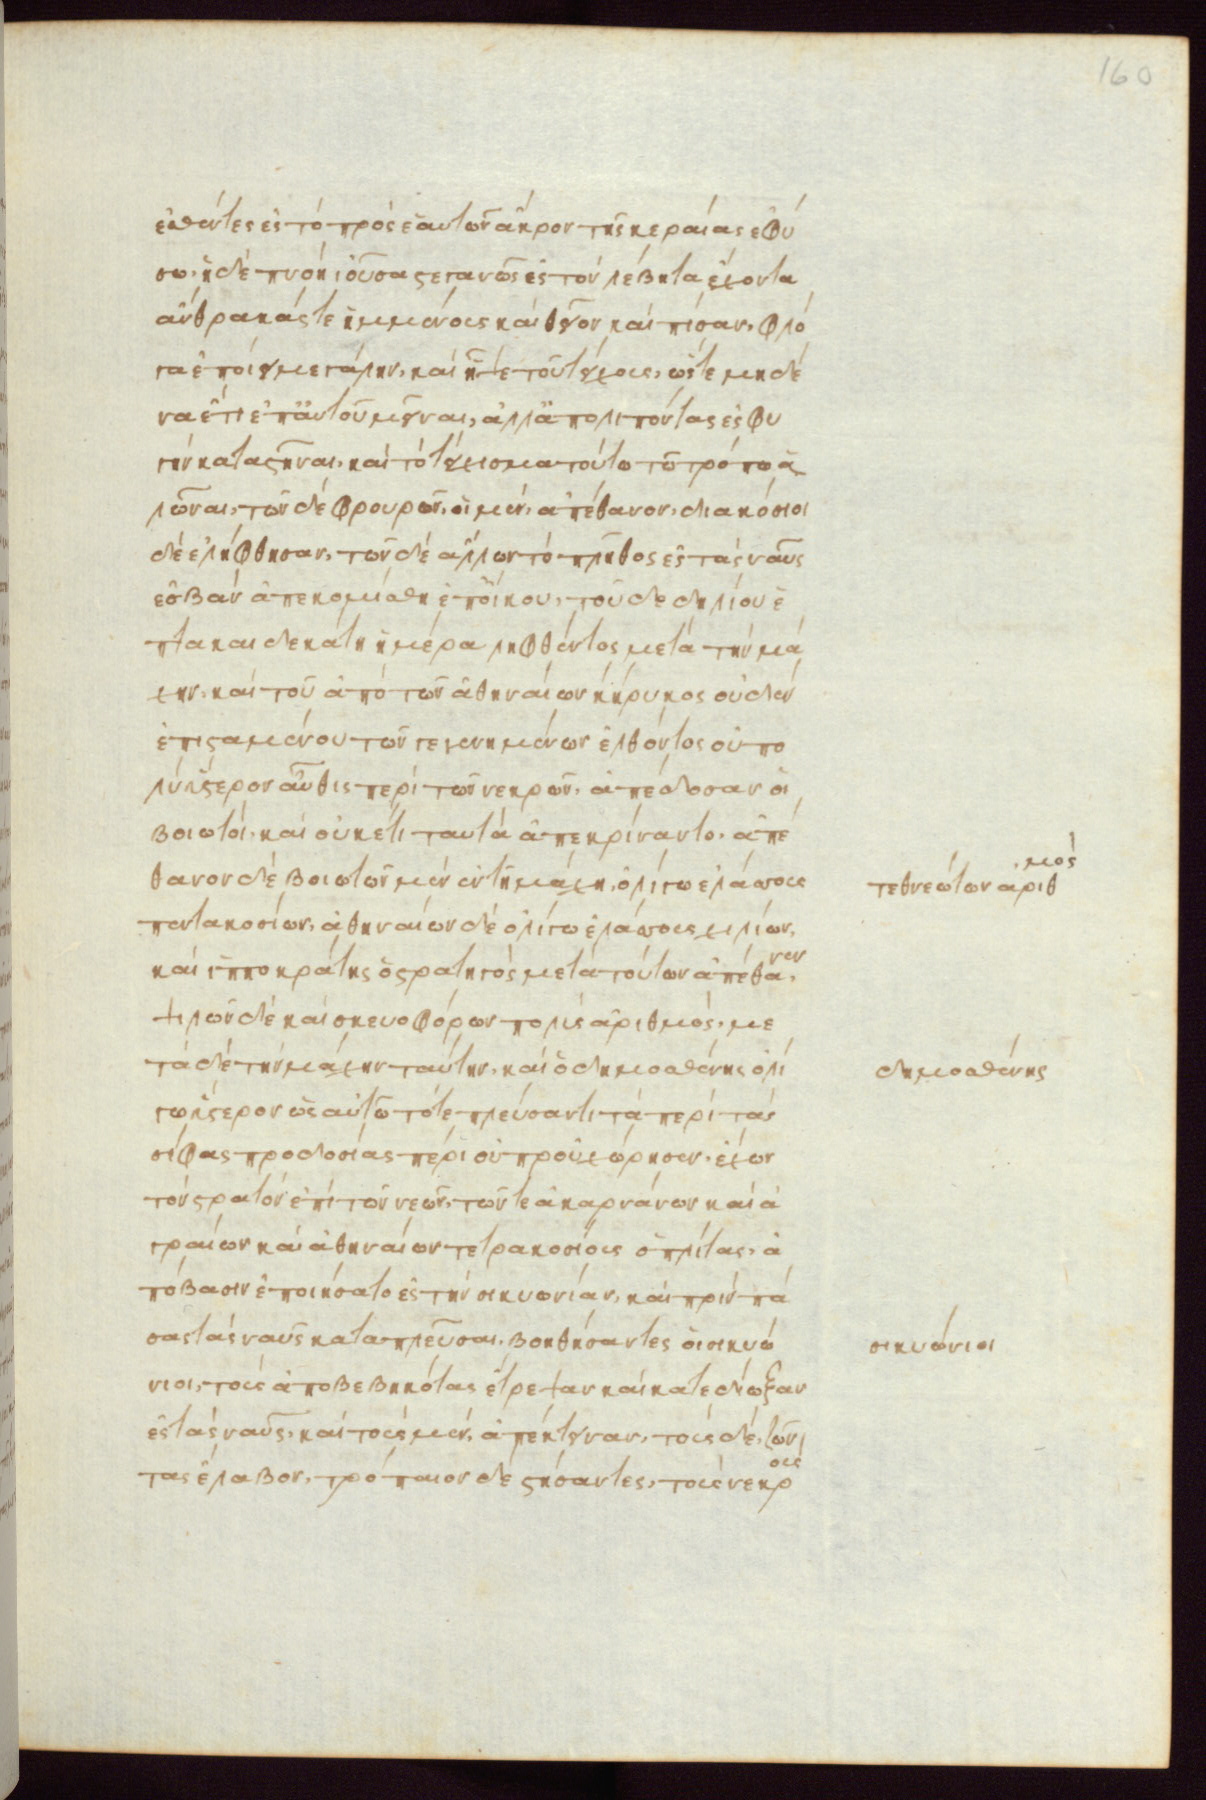 160
ἐσθέντες ἐς τὸ πρὸς ἑαυτῶν ἄκρον τῆς κεραίας ἐφύ
σων. ἡ δὲ πνοὴ ἰοῦσα στεγανῶς ἐς τὸν λέβητα ἔχοντα
ἄνθρακάς τε ἡμμένους καὶ θεῖον καὶ πίσσαν, φλό
γα ἐποίει μεγάλην, καὶ ἧψε τοῦ τείχους, ὥστε μηδέ
να ἔτι ἐπ' αὐτοῦ μεῖναι, ἀλλ' ἀπολιπόντας ἐς φυ
γὴν καταστῆναι, καὶ τὸ τείχισμα τούτω τῶ τρόπω ἁ
λῶναι, τῶν δὲ φρουρῶν, οἱ μὲν, ἀπέθανον, διακόσιοι
δὲ ἐλήφθησαν, τῶν δὲ ἄλλων τὸ πλῆθος ἐς τὰς ναῦς
ἐσβὰν ἀπεκομίσθη ἐπ' οἴκου, τοῦ δὲ δηλίου ἑ
πτακαιδεκάτη ἡμέρα ληφθέντος μετὰ τὴν μά
χην, καὶ τοῦ ἀπὸ τῶν ἀθηναίων κήρυκος οὐδὲν
ἐπισταμένου τῶν γεγενημένων ἐλθόντος οὐ πο
λὺ ὕστερον αὖθις περὶ τῶν νεκρῶν, ἀπέδοσαν οἱ
βοιωτοί, καὶ οὐκέτι ταυτὰ ἀπεκρίναντο. ἀπέ
θανον δὲ βοιωτῶν μὲν ἐν τῆ μάχη, ὀλίγω ἐλάσσους
πεντακοσίων, ἀθηναίων δὲ ὀλίγω ἐλάσσους χιλίων,
καὶ ἱπποκράτης ὁ στρατηγὸς μετὰ τούτων ἀπέθανεν,
ψιλῶν δὲ καὶ σκευοφόρων πολὺς ἀριθμός. με
τὰ δὲ τὴν μάχην ταύτην, καὶ ὁ δημοσθένης ὀλί
γω ὕστερον ὡς αὐτῶ τότε πλεύσαντι τὰ περὶ τὰς
σίφας προδοσίας πέρι οὐ προὐχώρησεν, ἔχων
τὸν στρατὸν ἐπὶ τῶν νεῶν, τῶν τε ἀκαρνάνων καὶ ἀ
γραίων καὶ ἀθηναίων τετρακοσίους ὁπλίτας, ἀ
πόβασιν ἐποιήσατο ἐς τὴν σικυωνίαν, καὶ πρὶν πά
σας τὰς ναῦς καταπλεῦσαι, βοηθήσαντες οἱ σικυώ
νιοι, τοὺς ἀποβεβηκότας ἔτρεψαν καὶ κατεδίωξαν
ἐς τὰς ναῦς, καὶ τοὺς μὲν, ἀπέκτειναν, τοὺς δὲ, ζῶν
τας ἔλαβον, τρόπαιον δὲ στήσαντες, τοὺς νεκρούς
τεθνεώτων ἀριθμός
δημοσθένης
σικυώνιοι